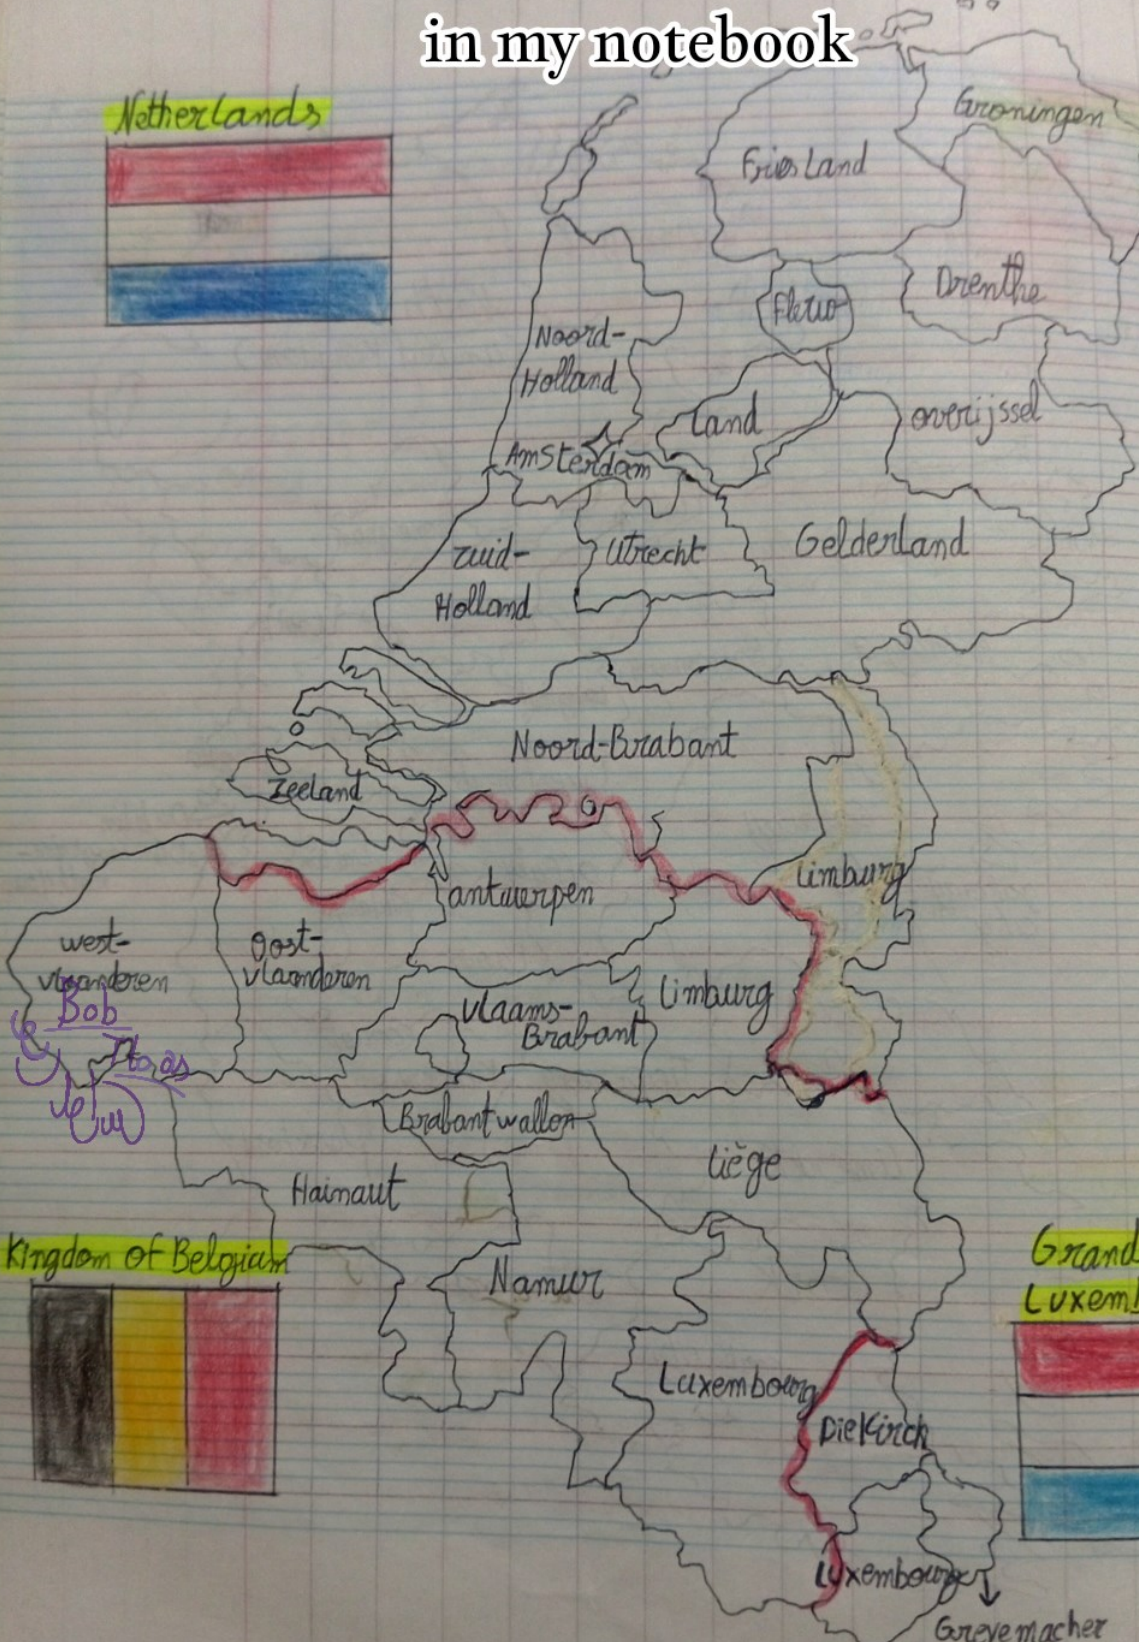 in my notebook
Netherlands
Groningen
Friesland
Drenthe
Flevo-
Noord-
Holland
land
overijssel
Amsterdam
zuid-
Holland
Utrecht
Gelderland
Noord-Brabant
Zeeland
Limburg
antwerpen
west-
vlaanderen
Oost-
vlaanderen
Limburg
Vlaams-
Brabant
Bob
Brabant wallon
Liège
Hainaut
Kingdom of Belgium
Namur
Grand
Luxem
Luxembourg
Diekirch
Luxembourg
Grevemacher